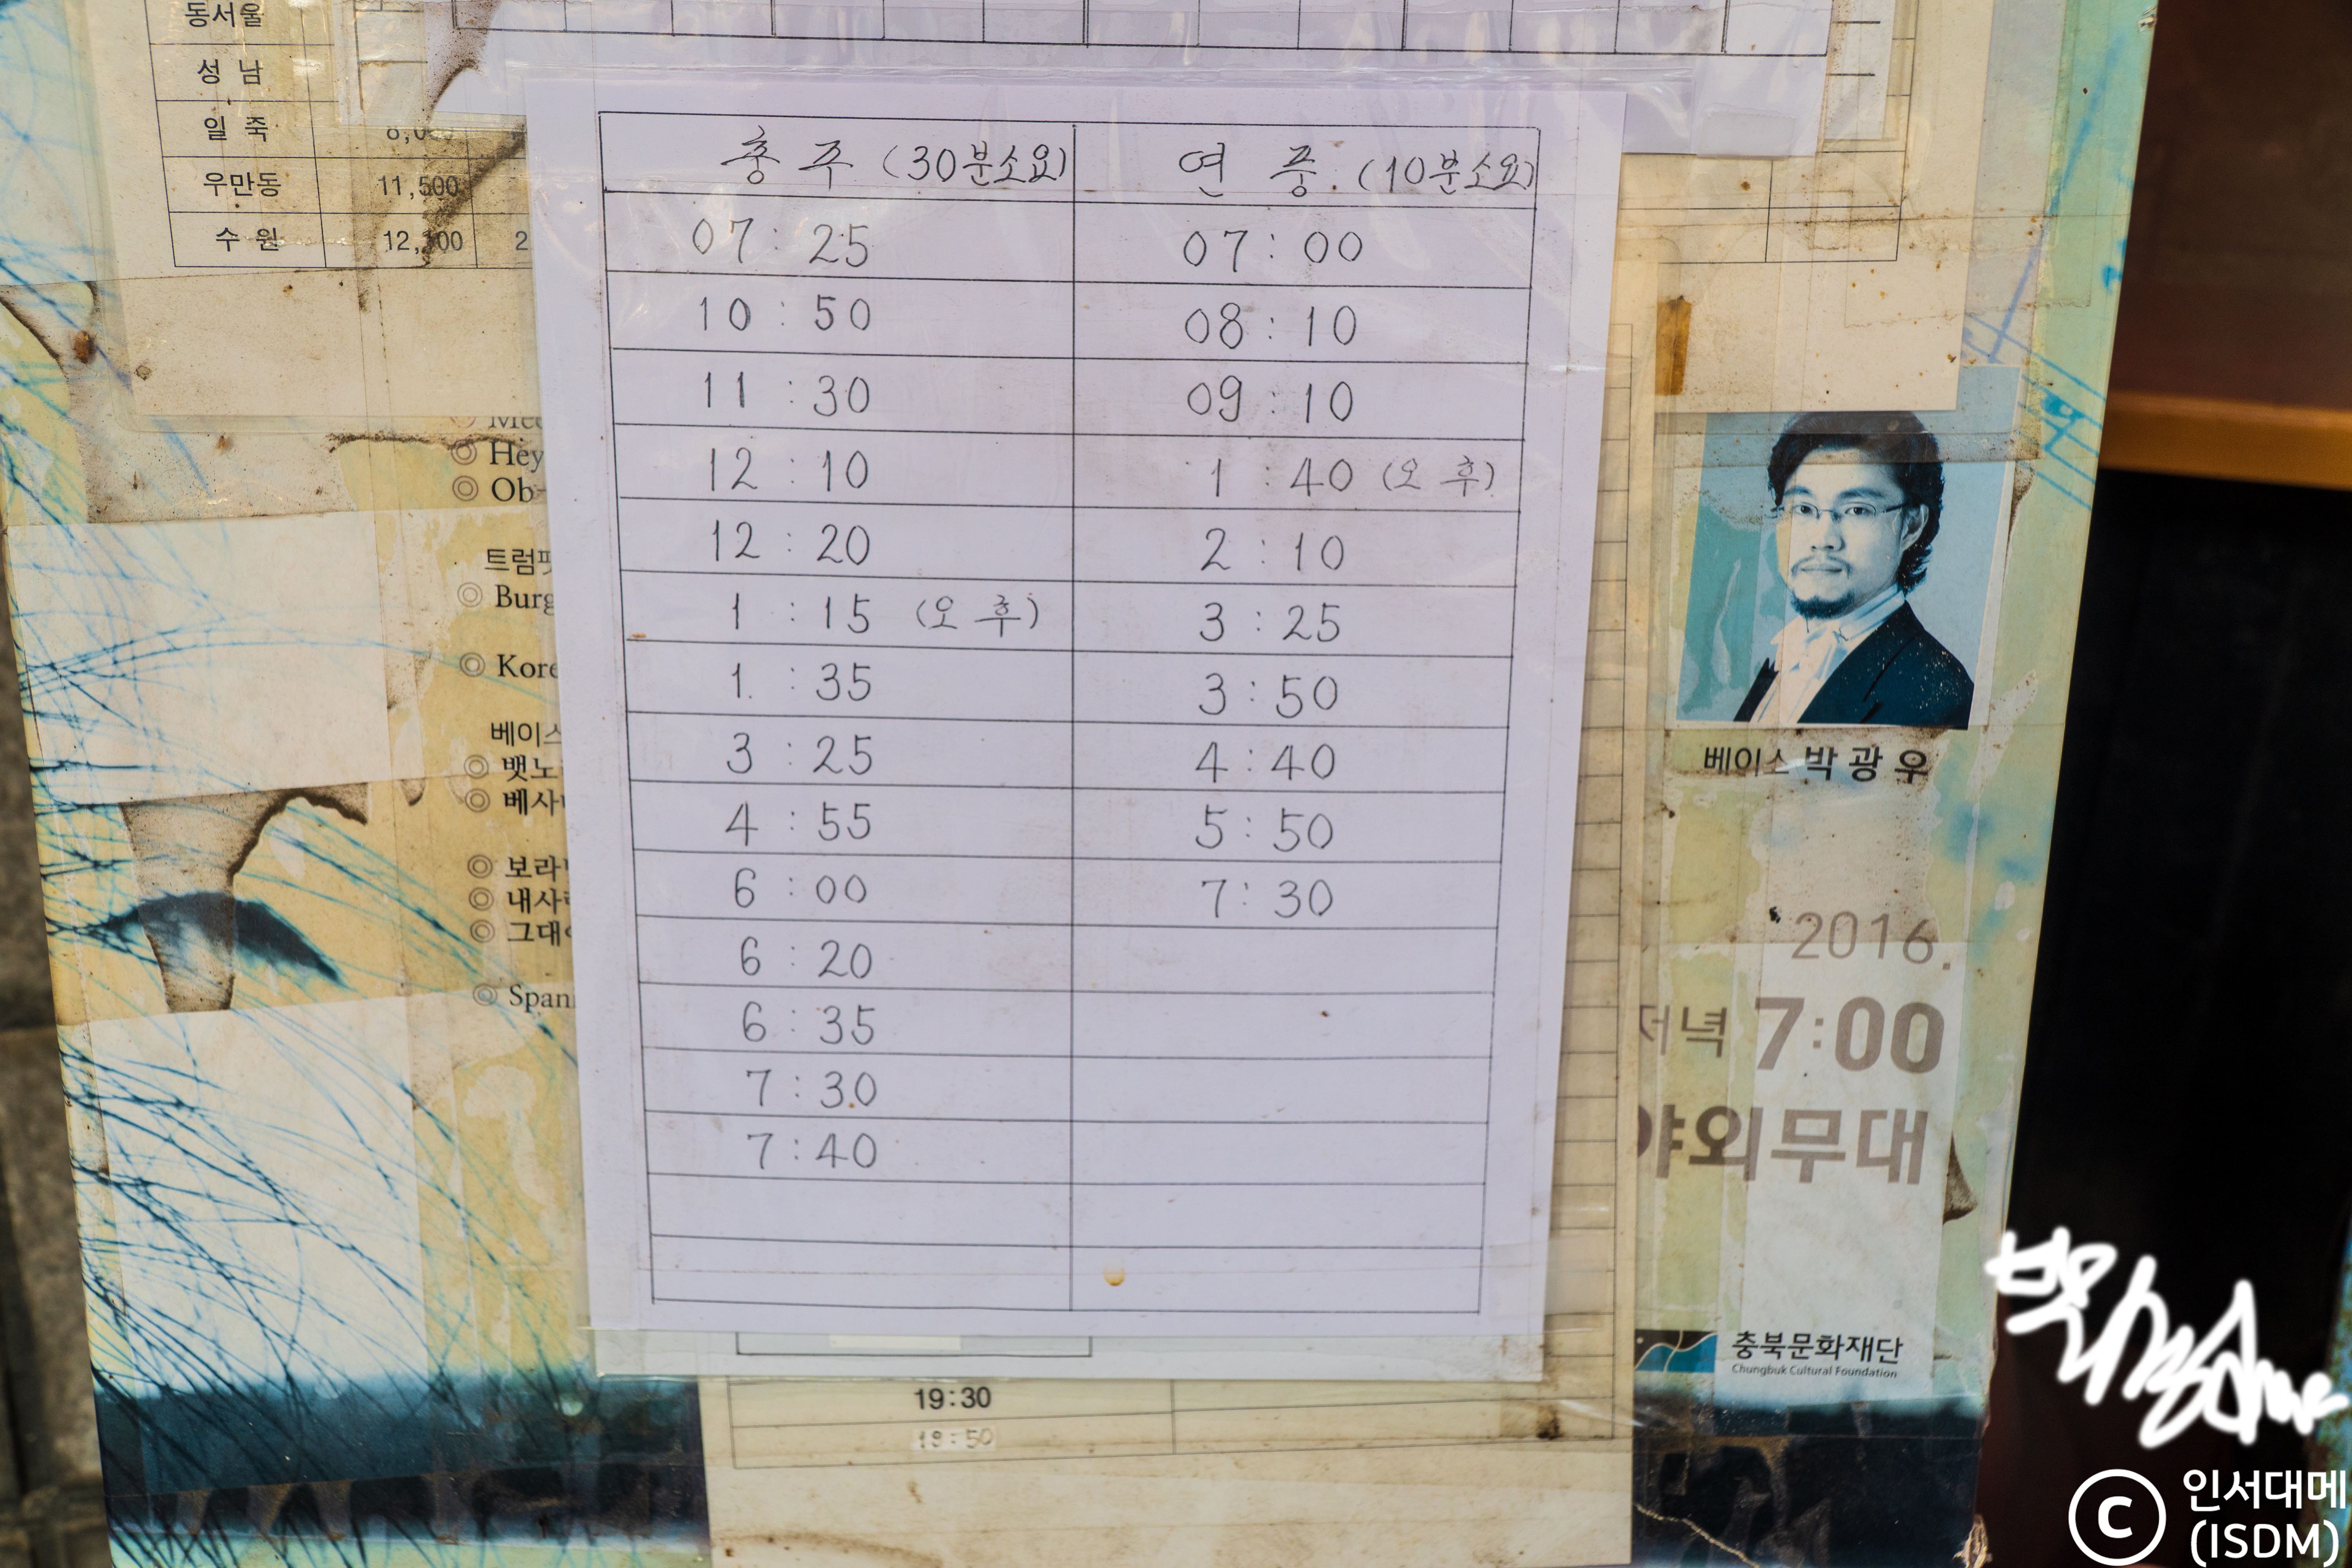 동서울
성 남
일 죽
우만동 11,500
수 원
충 주 (30분소요) 연 중 (10분소요)
07 : 25 07 : 00
10 : 50 08 : 10
11 : 30 09 : 10
12 : 10 1 : 40 (오 후)
12 : 20 2 : 10
1 : 15 (오 후) 3 : 25
1 : 35 3 : 50
3 : 25 4 : 40
4 : 55 5 : 50
6 : 00 7 : 30
6 : 20
6 : 35
7 : 30
7 : 40
◎ Hey
◎ Ob
트럼펫
◎ Burg
◎ Kore
베이스
◎ 뱃노
◎ 베사
◎ 보라
◎ 내사
◎ 그대
◎ Span
베이스 박 광 우
2016.
저녁 7:00
야외무대
충북문화재단
Chungbuk Cultural Foundation
19:30
© 인서대메
(ISDM)